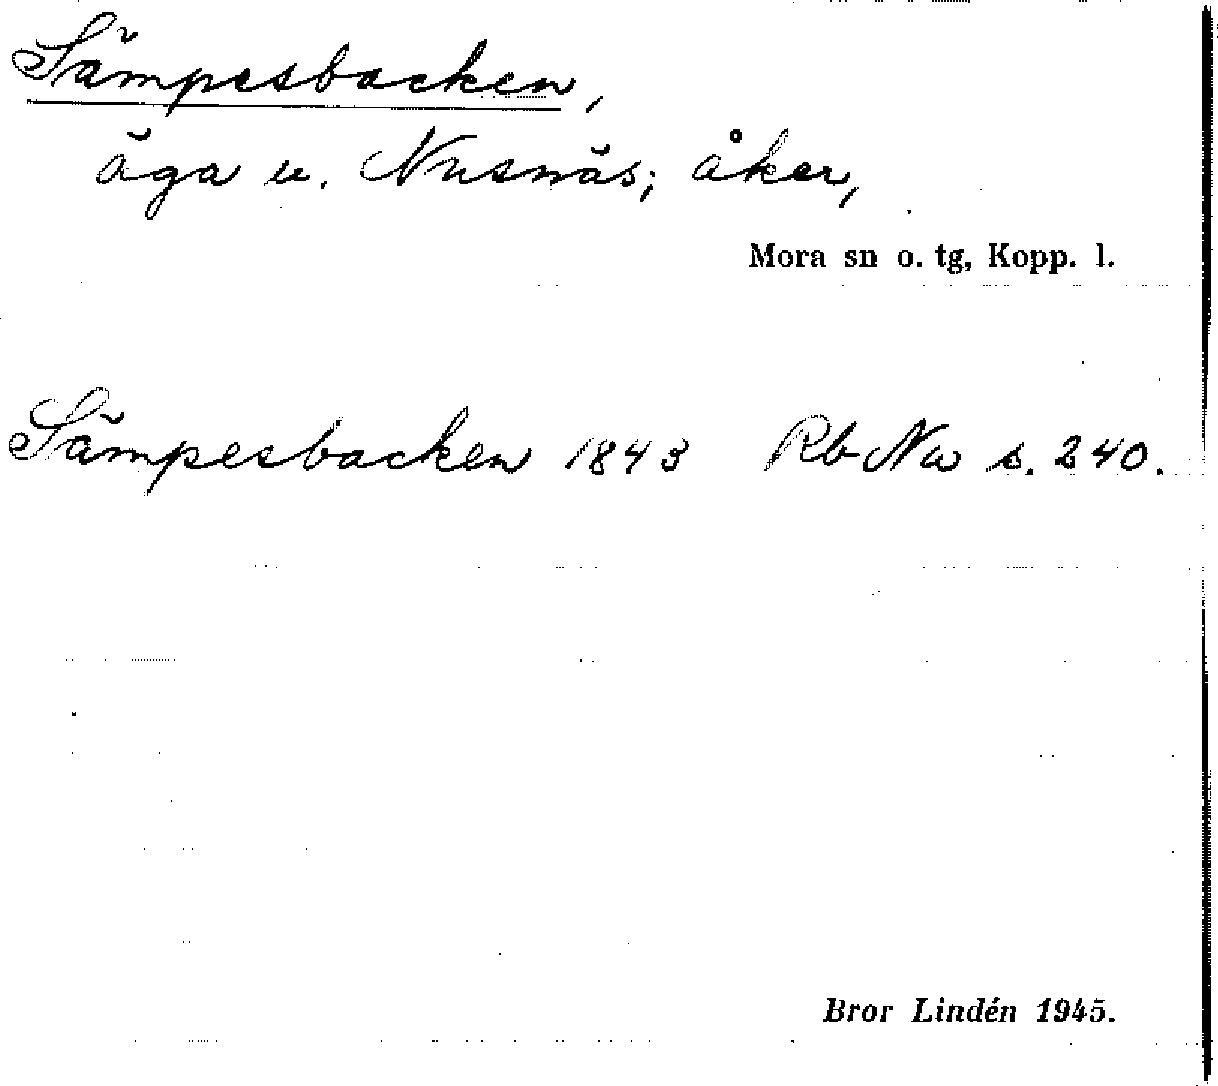 Sämpesbacken,
äga u. Nusnäs; åker,
Mora sn o. tg, Kopp. l.
Sämpesbacken 1843 Rb Nw s. 240.
Bror Lindén 1945.